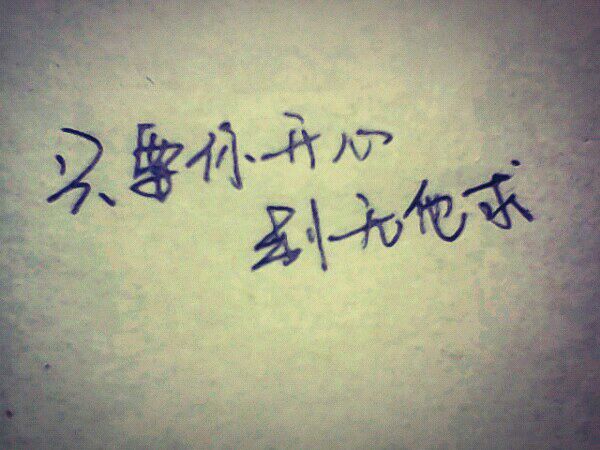 只要你开心
别无他求